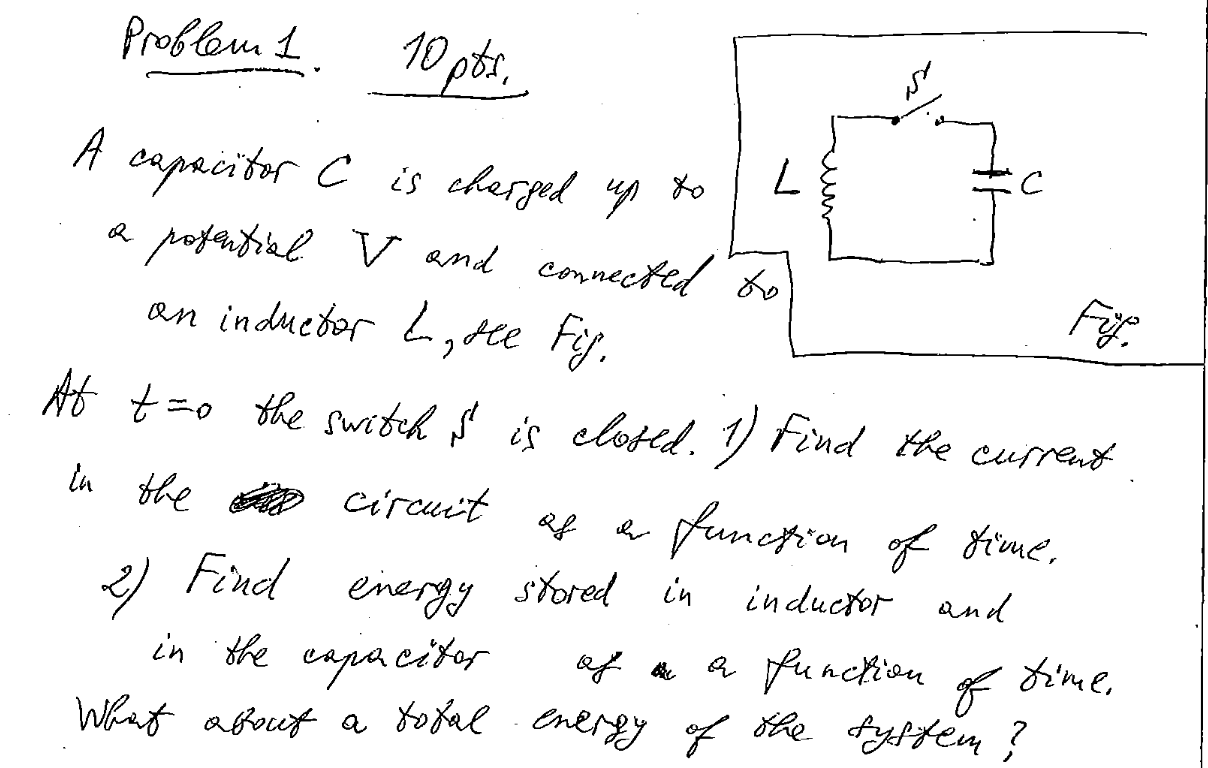 Problem 1. 10 pts.
A capacitor C is charged up to
a potential V and connected to
an inductor L, see Fig.
S
L
C
Fig.
At t=0 the switch S is closed. 1) Find the current
in the circuit as a function of time.
2) Find energy stored in inductor and
in the capacitor as a function of time.
What about a total energy of the system?